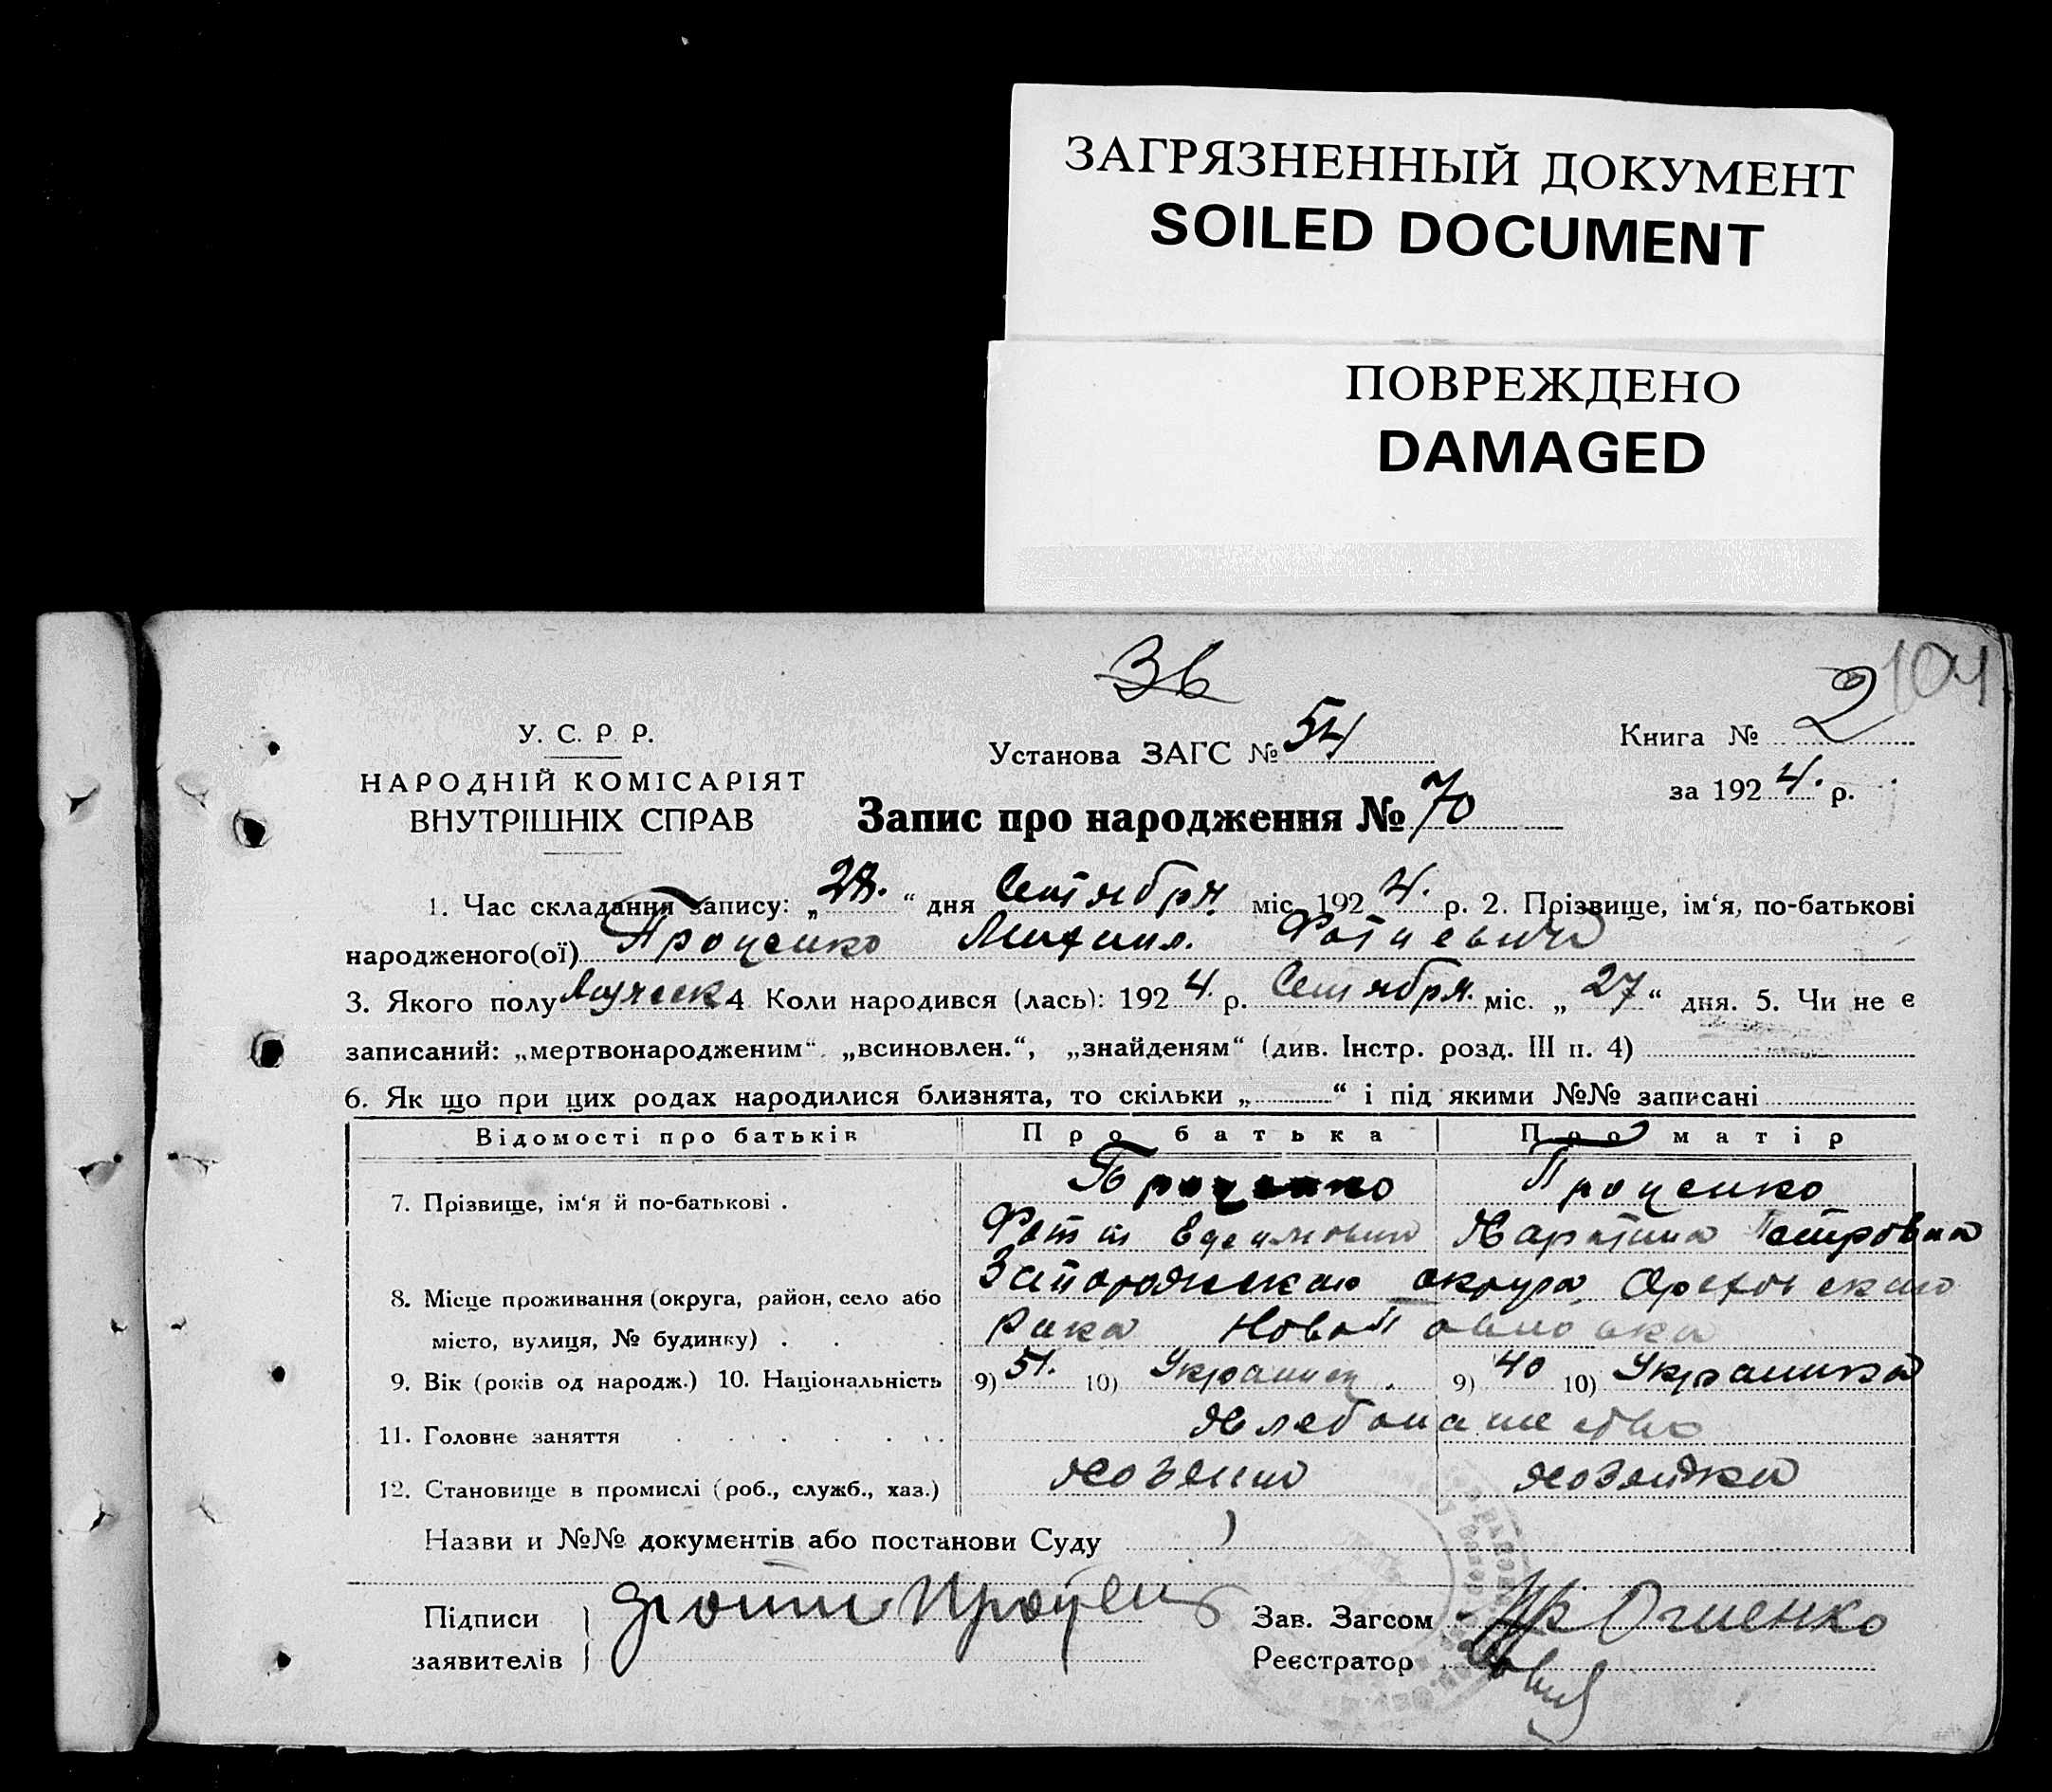 ЗАГРЯЗНЕННЫЙ ДОКУМЕНТ
SOILED DOCUMENT
ПОВРЕЖДЕНО
DAMAGED
36
2 104
У. С. Р. Р.
Установа ЗАГС № 54
Книга № 2
НАРОДНІЙ КОМІСАРІЯТ
за 1924. р.
ВНУТРІШНІХ СПРАВ
Запис про народження № 70
1. Час складання запису: „28.“ дня Сентября міс. 1924. р. 2. Прізвище, ім‘я, по-батькові
народженого(ої) Проценко Михаил. Фотиевич
3. Якого полу Мужеск 4 Коли народився (лась): 1924. р. Сентября. міс. „27“ дня. 5. Чи не є
записаний: „мертвонародженим“, „всиновлен.“, „знайденям“ (див. Інстр. розд. III п. 4)
6. Як що при цих родах народилися близнята, то скільки „ “ і під якими №№ записані
Відомості про батьків Про батька Про матір
7. Прізвище, ім‘я й по-батькові . Проценко Проценко
Фотий Петровна
8. Місце проживання (округа, район, село або Запорожская округа, Ореховский
місто, вулиця, № будинку) . Новопавловка
9. Вік (років од народж.) 10. Національність 9) 51. 10) Украинец . 9) 40 10) Украинка
11. Головне заняття Хлебопашество
12. Становище в промислі (роб., служб., хаз.) Хозяин Хозяйка
Назви и №№ документів або постанови Суду
Підписи Фотий Проценко Зав. Загсом Огиенко
заявителів Реєстратор